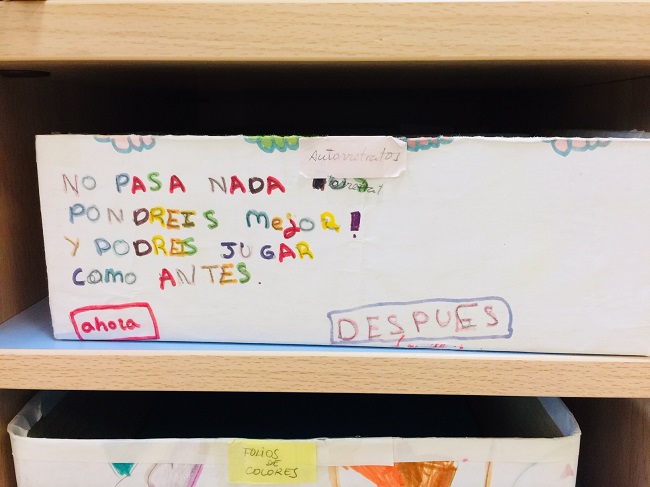 Autorretratos
NO PASA NADA
PONDREIS MejOR!
Y PODREIS JUGAR
COMO ANTES.
ahora
DESPUES
FOLIOS
DE
COLORES